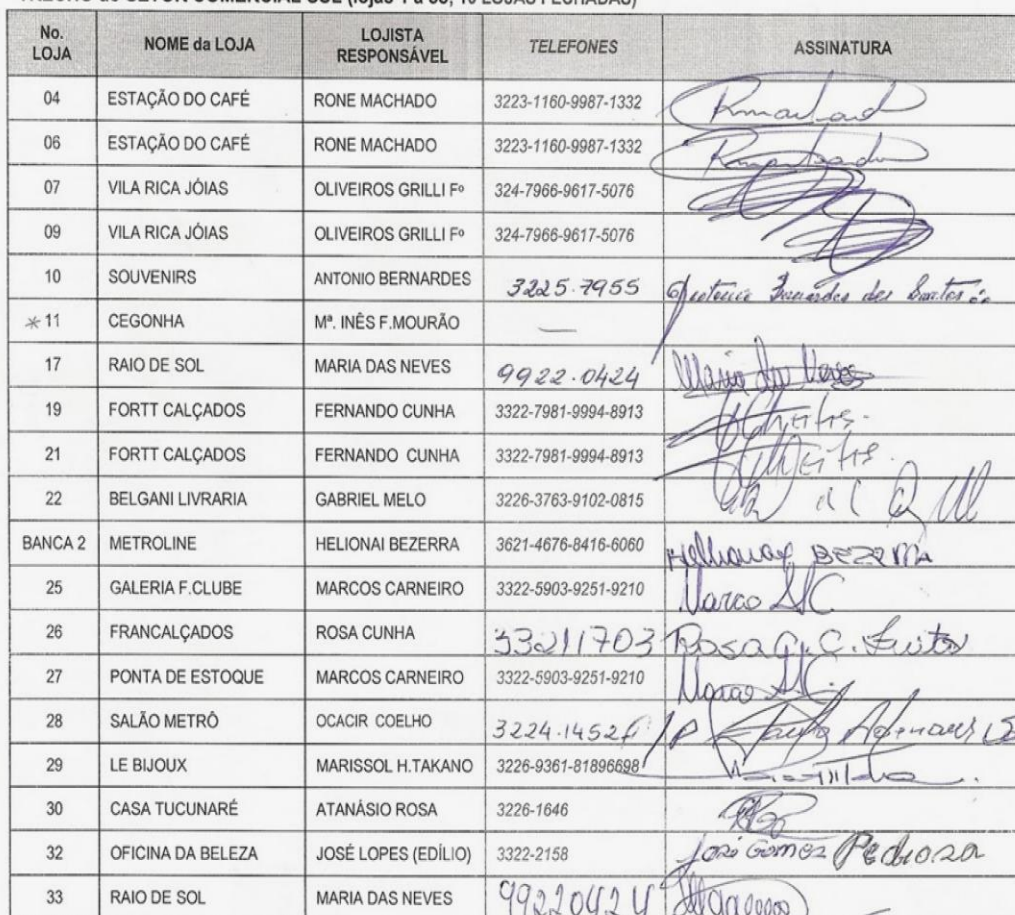 No. LOJA NOME da LOJA LOJISTA RESPONSÁVEL TELEFONES ASSINATURA
04 ESTAÇÃO DO CAFÉ RONE MACHADO 3223-1160-9987-1332
06 ESTAÇÃO DO CAFÉ RONE MACHADO 3223-1160-9987-1332
07 VILA RICA JÓIAS OLIVEIROS GRILLI Fº 324-7966-9617-5076
09 VILA RICA JÓIAS OLIVEIROS GRILLI Fº 324-7966-9617-5076
10 SOUVENIRS ANTONIO BERNARDES 3225.7955
*11 CEGONHA Mª. INÊS F.MOURÃO —
17 RAIO DE SOL MARIA DAS NEVES 9922.0424 Maria das Neves
19 FORTT CALÇADOS FERNANDO CUNHA 3322-7981-9994-8913
21 FORTT CALÇADOS FERNANDO CUNHA 3322-7981-9994-8913
22 BELGANI LIVRARIA GABRIEL MELO 3226-3763-9102-0815
BANCA 2 METROLINE HELIONAI BEZERRA 3621-4676-8416-6060
25 GALERIA F.CLUBE MARCOS CARNEIRO 3322-5903-9251-9210
26 FRANCALÇADOS ROSA CUNHA 33211703 Rosa C.
27 PONTA DE ESTOQUE MARCOS CARNEIRO 3322-5903-9251-9210
28 SALÃO METRÔ OCACIR COELHO 3224.1452
29 LE BIJOUX MARISSOL H.TAKANO 3226-9361-81896698
30 CASA TUCUNARÉ ATANÁSIO ROSA 3226-1646
32 OFICINA DA BELEZA JOSÉ LOPES (EDÍLIO) 3322-2158 José Gomes Pedrosa
33 RAIO DE SOL MARIA DAS NEVES 99220424